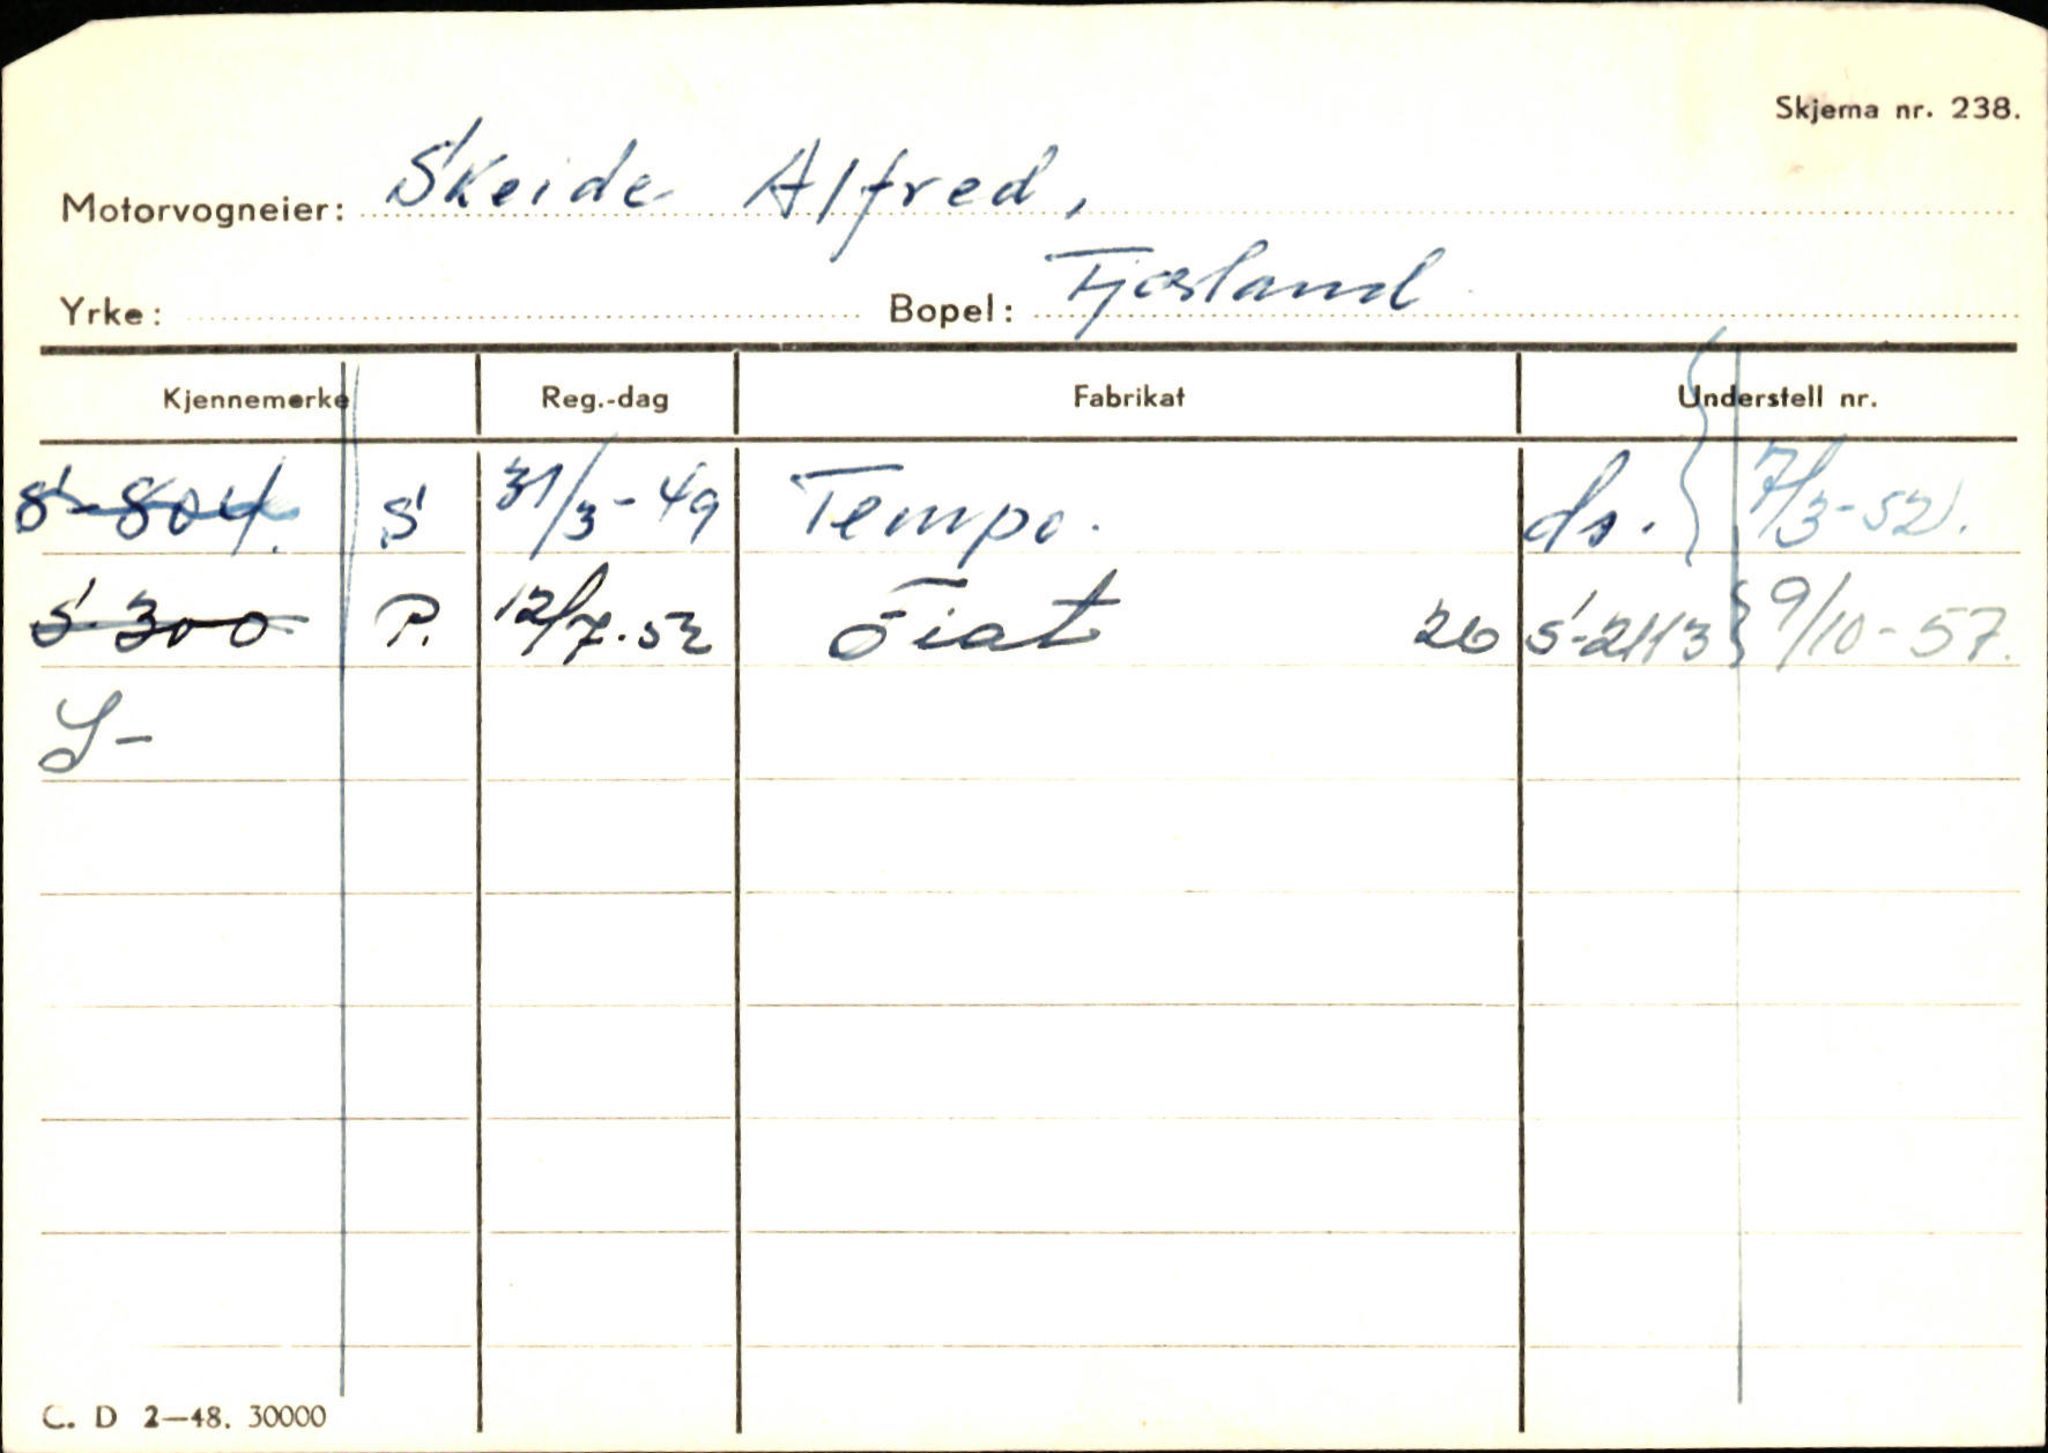 Skjema nr. 238.
Motorvogneier: Skeide Alfred,
Yrke: Bopel: Fjærland
Kjennemerke Reg.-dag Fabrikat Understell nr.
S-804. S 31/3-49 Tempo. ds. 7/3-52.
S-300 P. 12/7-52 Fiat 26 S-2113 9/10-57.
S-
C. D 2—48. 30000